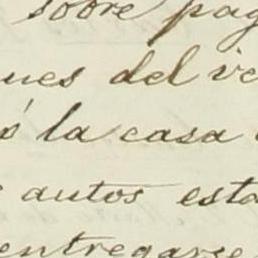 sobre pag
ues del ve
ó la casa
autos esta
entregarse